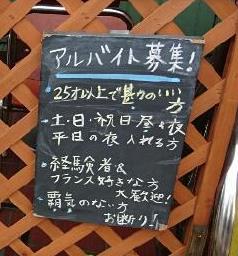 アルバイト募集!
25才以上で りのいい方
土・日・祝日昼&夜
平日の夜入れる方
経験者&
フランス好きな方
大歓迎!
覇気のない方
お断り!